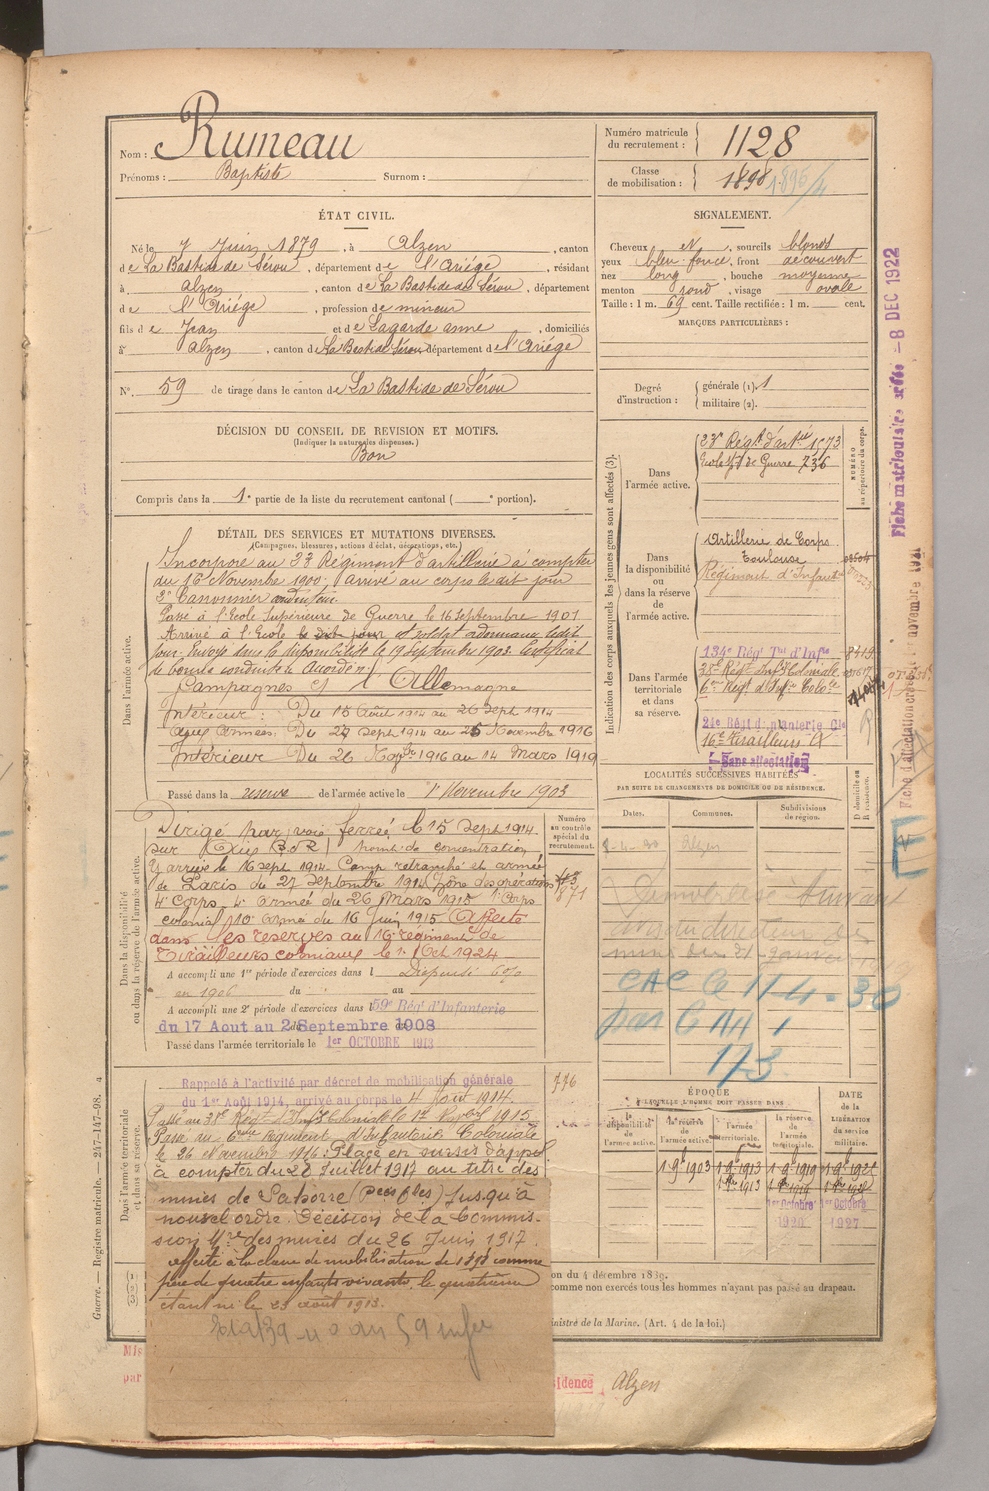 Nom : Rumeau
Prénoms : Baptiste Surnom :
Numéro matricule du recrutement : 1128
Classe de mobilisation : 1898 1896/4
ÉTAT CIVIL.
Né le 7 Juin 1879, à Alzen, canton
de La Bastide de Sérou, département de l'Ariége, résidant
à Alzen, canton de La Bastide de Sérou, département
de l'Ariége, profession de mineur
fils de Jean et de Lagarde anne, domiciliés
à Alzen, canton de La Bastide Sérou département de l'Ariége
N° 59 de tirage dans le canton de La Bastide de Sérou
DÉCISION DU CONSEIL DE REVISION ET MOTIFS.
(Indiquer la nature des dispenses.)
Bon
Compris dans la 1e partie de la liste du recrutement cantonal ( e portion).
SIGNALEMENT.
Cheveux , sourcils blonds
yeux bleu foncé, front découvert
nez long, bouche moyenne
menton rond, visage ovale
Taille : 1 m. 69 cent. Taille rectifiée : 1 m. cent.
MARQUES PARTICULIÈRES :
Degré d'instruction : générale (1). 1
militaire (2).
DÉTAIL DES SERVICES ET MUTATIONS DIVERSES.
(Campagnes, blessures, actions d'éclat, décorations, etc.)
Dans l'armée active.
Incorporé au 23e Régiment d'artillerie à compter
du 16 Novembre 1900. arrivé au corps le dit jour
2e Canonnier conducteur.
Passé à l'Ecole Supérieure de Guerre le 16 Septembre 1901
Arrivé à l'Ecole le dit jour et soldat ordonnance ledit
jour. Envoyé dans la disponibilité le 19 Septembre 1903. Certificat
de bonne conduite Accordé
Campagnes Cl l'Allemagne
Intérieur : Du 15 Août 1914 au 26 Sept 1914
aux armées. Du 27 Sept 1914 au 25 Novembre 1916
Intérieur Du 26 Novbre 1916 au 14 Mars 1919
Passé dans la reserve de l'armée active le 1r Novembre 1903
Dans la disponibilité ou dans la réserve de l'armée active.
Dirigé par voie ferrée le 15 Sept 1914
sur point de concentration
Y arrivé le 16 sept 1914. Camp retranché et armée
de Paris du 27 Septembre 1914 (Zone des opérations
4e Corps, 4e armée du 26 Mars 1915 1er Corps
colonial 10e armée du 16 Juin 1915 Affecté
dans les reserves au 16e regiment de
Tirailleurs coloniaux le 1er Oct 1924
A accompli une 1re période d'exercices dans l Dispensé
en 1906 du au
A accompli une 2e période d'exercices dans l 59e Régt d'Infanterie
du 17 Aout au 2 Septembre 1908
Passé dans l'armée territoriale le 1er OCTOBRE 1913
Numéro au contrôle spécial du recrutement.
871
776
Dans l'armée territoriale et dans sa réserve.
Rappelé à l'activité par décret de mobilisation générale
du 1er Août 1914, arrivé au corps le 4 Août 1914.
Passé au 6eme régiment d'Infanterie Coloniale
le 26 Novembre 1916. Placé en sursis d'appel
à compter du 20 Juillet 1917 au titre des
mines de Sahorre (Pees Oles) jusqu'à
nouvel ordre. Décision de la Commis-
sion Mre des mines du 26 Juin 1917.
affecté à la classe de mobilisation de 1898 comme
père de quatre enfants vivants, le quatrième
étant né le 23 août 1913.
Indication des corps auxquels les jeunes gens sont affectés (3).
NUMÉRO au répertoire du corps.
Dans l'armée active.
23e Régt d'artie 1573
Ecole de Guerre 736
Dans la disponibilité ou dans la réserve de l'armée active.
Artillerie de Corps
Toulouse
Régiment d'Infant
Dans l'armée territoriale et dans sa réserve.
134e Régt Tal d'Infie 8419
38e Régt d'Infie Coloniale
6e Régt d'Infie Colole
24e Régt d'Infanterie Cle
16e Tirailleurs
Sans affectation
LOCALITÉS SUCCESSIVES HABITÉES
PAR SUITE DE CHANGEMENTS DE DOMICILE OU DE RÉSIDENCE.
Dates. Communes. Subdivisions de région. D domicile ou R résidence.
Alzen
CAC le 11 4-30
par C
173
ÉPOQUE
À LAQUELLE L'HOMME DOIT PASSER DANS
la disponibilité de l'armée active. la réserve de l'armée active. l'armée territoriale. la réserve de l'armée territoriale. DATE de la LIBÉRATION du service militaire.
1 9bre 1903 1 9bre 1913 1 9bre 1919
1er Octobre 1920 1er Octobre 1927
on du 4 décembre 1889.
comme non exercés tous les hommes n'ayant pas passé au drapeau.
inistre de la Marine. (Art. 4 de la loi.)
sidence Alzen
Guerre. — Registre matricule. — 247-147-98.
Fiche matriculaire créée -8 DEC 1922